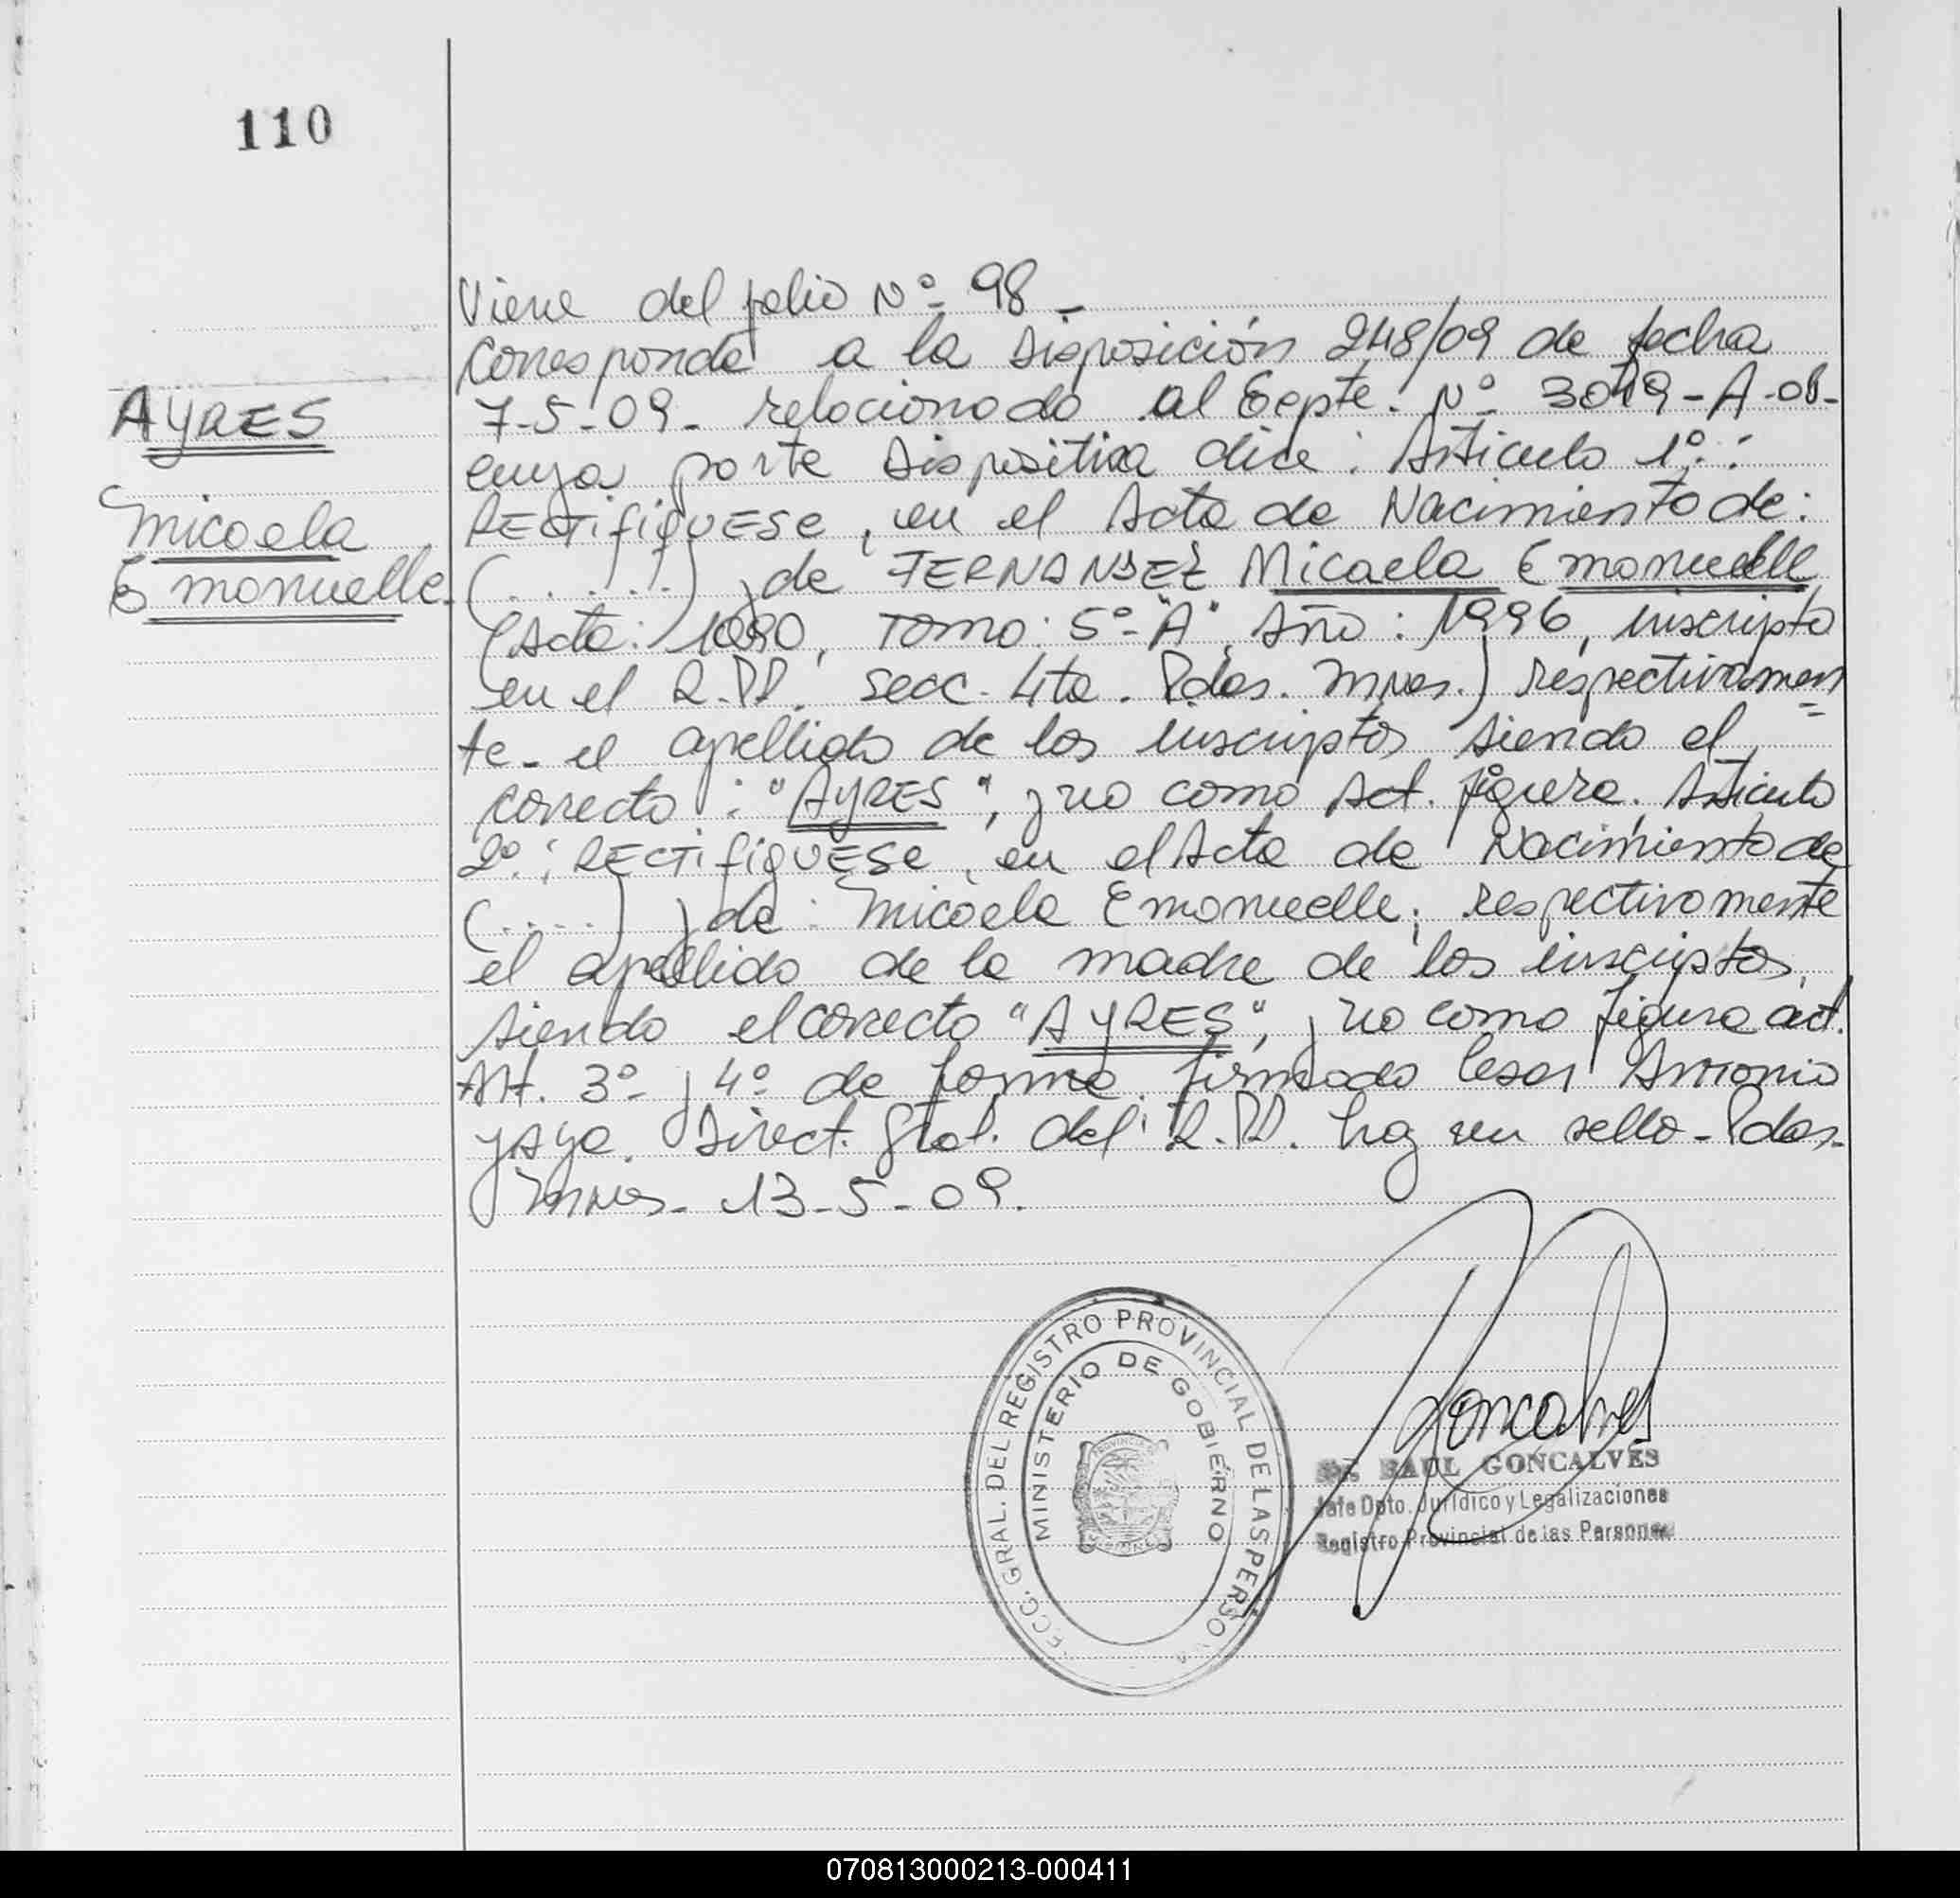 110
AYRES
Micaela
Emanuelle.
Viene del folio Nº 98 -
Corresponde a la Disposición 248/09 de fecha
7-5-09- relacionado al Expte. Nº -A-08-
cuya parte dispositiva dice: Articulo 1º:
RECTIFIQUESE, en el Acta de Nacimiento de:
(......) y de FERNANDEZ Micaela Emanuelle
(Acta: 1090, Tomo: 5º-"A" Año: 1996, inscripta
en el R.PP. Secc. 4ta. Pdas. Mnes.) respectivamen
te- el apellido de los inscriptos siendo el
correcto: "AYRES", y no como Act. figura. Articulo
2º: RECTIFIQUESE, en el Acta de Nacimiento de
(.....) y de: Micaela Emanuelle, respectivamente
el apellido de la madre de los inscriptos,
siendo el correcto "AYRES", y no como figura act.
Art. 3º y 4º de forma firmado Cesar Antonio
Yaya. Direct. Gral. del R.PP. hay un sello- Pdas-
Mnes- 13-5-09.
ECC. GRAL. DEL REGISTRO PROVINCIAL DE LAS PERSO
MINISTERIO DE GOBIERNO
Goncalves
RAUL GONCALVES
Jefe Dpto. Jurídico y Legalizaciones
Registro Provincial de las Personas
070813000213-000411